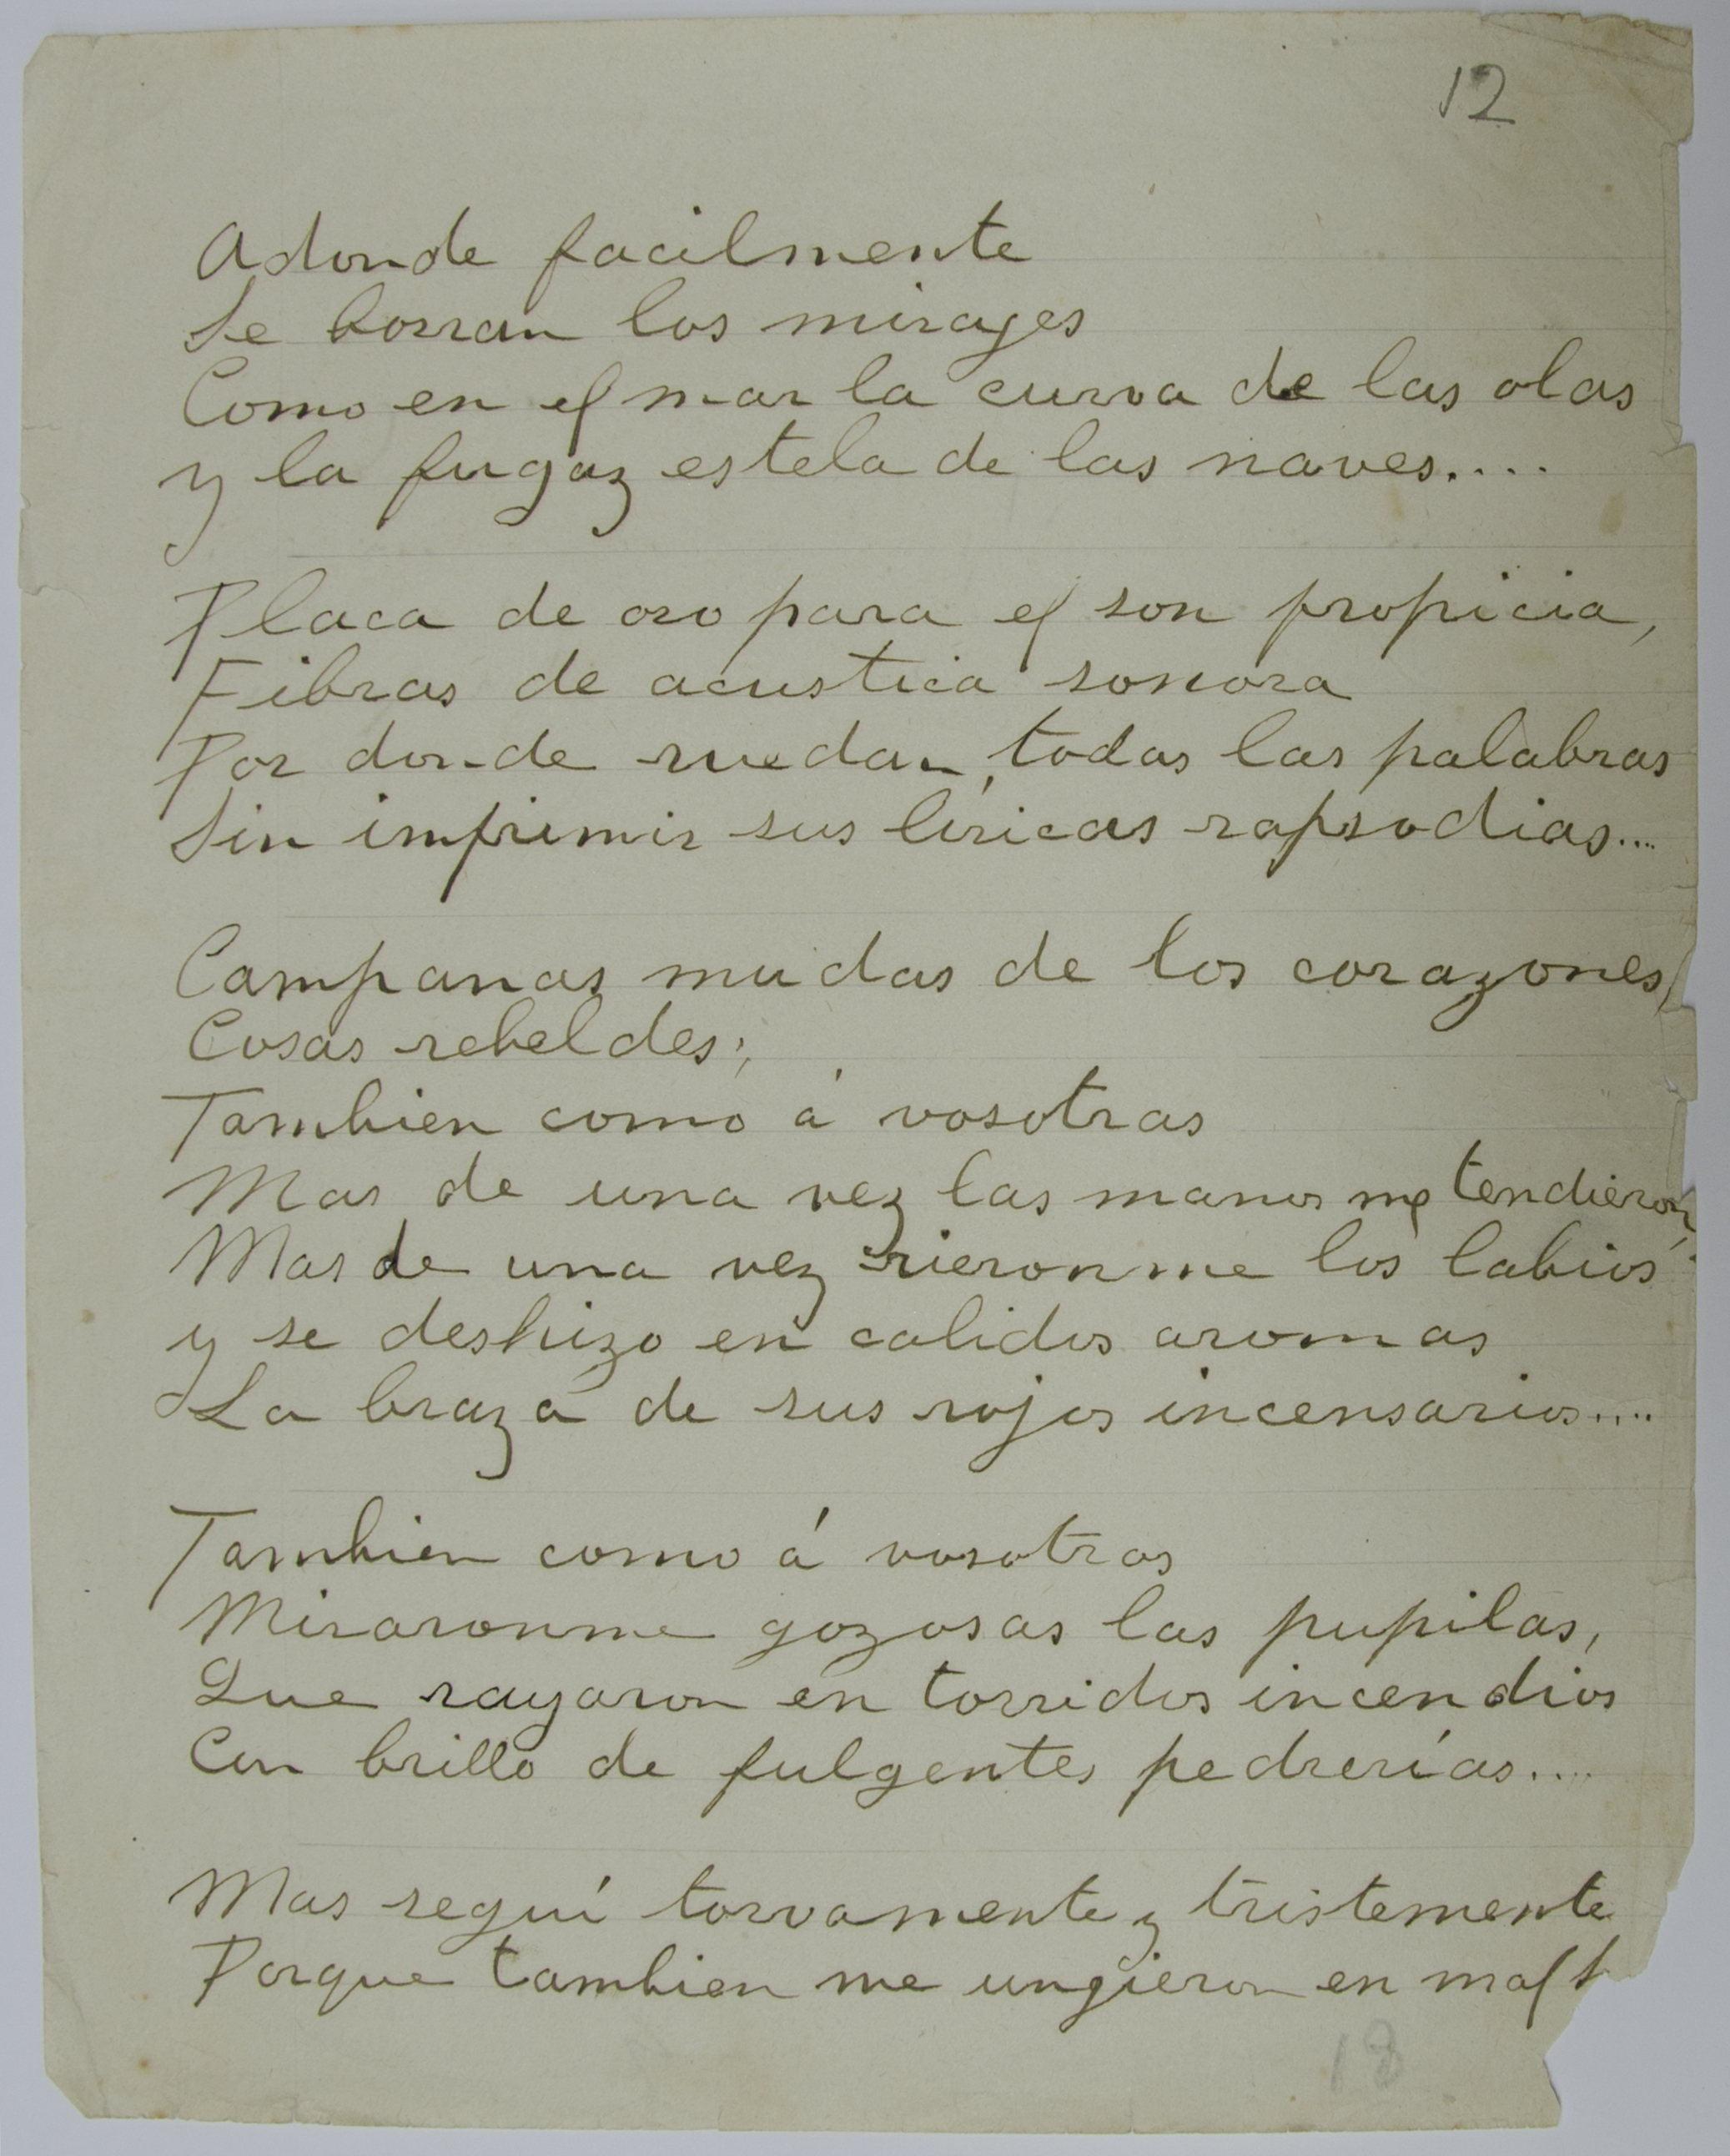 12
Adonde facilmente
Se borran los mirages
Como en el mar la curva de las olas
y la fugaz estela de las naves....
Placa de oro para el son propicia,
Fibras de acustica sonora
Por donde ruedan, todas las palabras
Sin imprimir sus líricas rapsodias....
Campanas mudas de los corazones,
Cosas rebeldes;
Tambien como á vosotras
Mas de una vez las manos me tendieron,
Mas de una vez rieronme los labios
y se deshizo en calidos aromas
La braza de sus rojos incensarios....
Tambien como á vosotras
Miraronme gozosas las pupilas,
Que rayaron en torridos incendios
Con brillo de fulgentes pedrerías....
Mas seguí torvamente y tristemente
Porque tambien me ungieron en mal
18